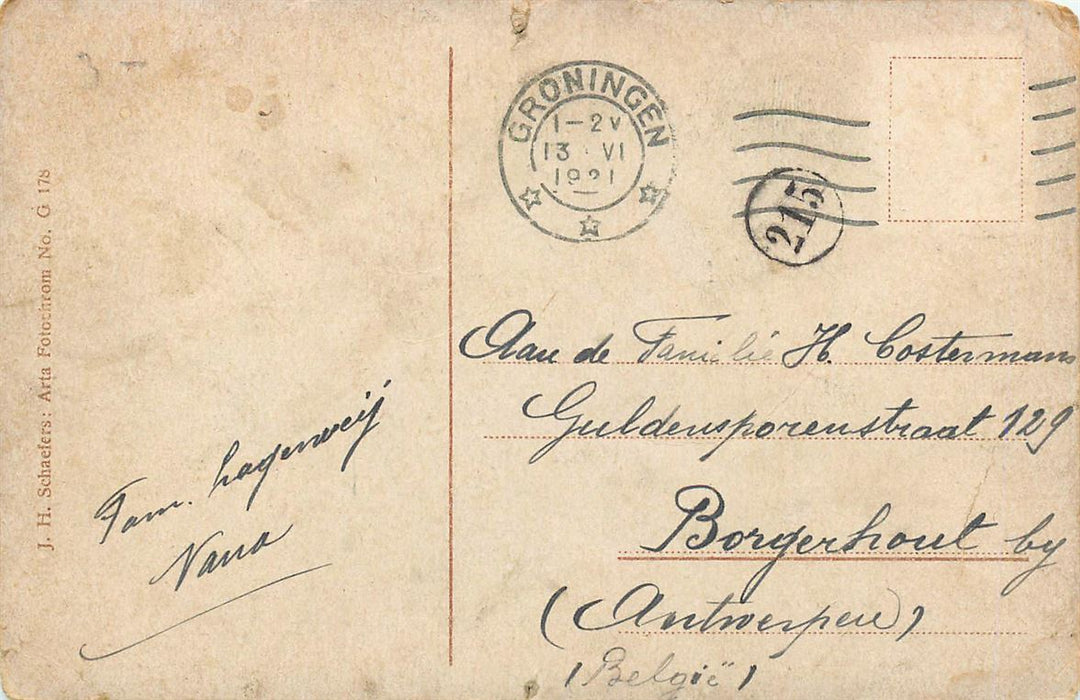 J. H. Schaefers: Arta Fotochrom No. G 178
Fam. Lagerweij
Nana
GRONINGEN
1-2V
13 VI
1921
215
Aan de Familie H. Costermans
Guldensporenstraat 129
Borgerhout by
(Antwerpen)
(België)